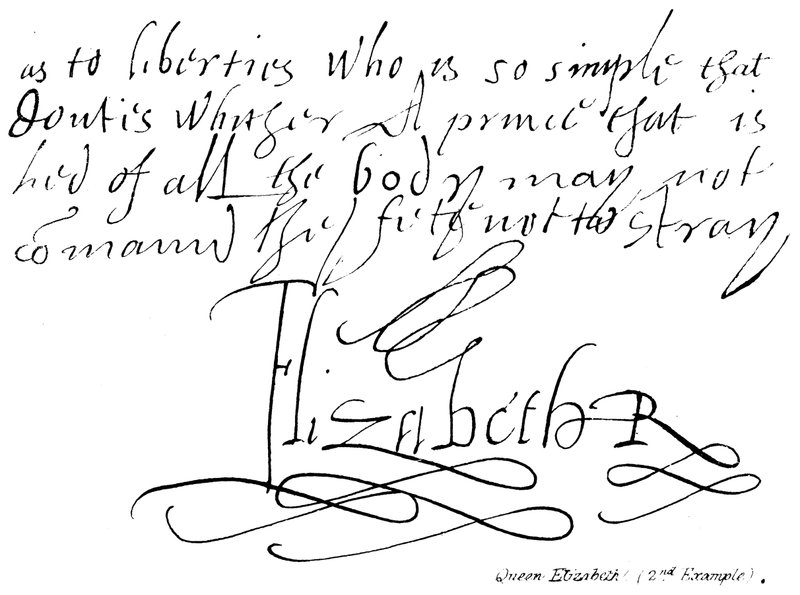 as to liberties who is so simple that
doutis whither A prince that is
hed of all the body may not
cōmaund the fete not to stray
Elizabeth R
Queen Elizabeth (2nd Example).